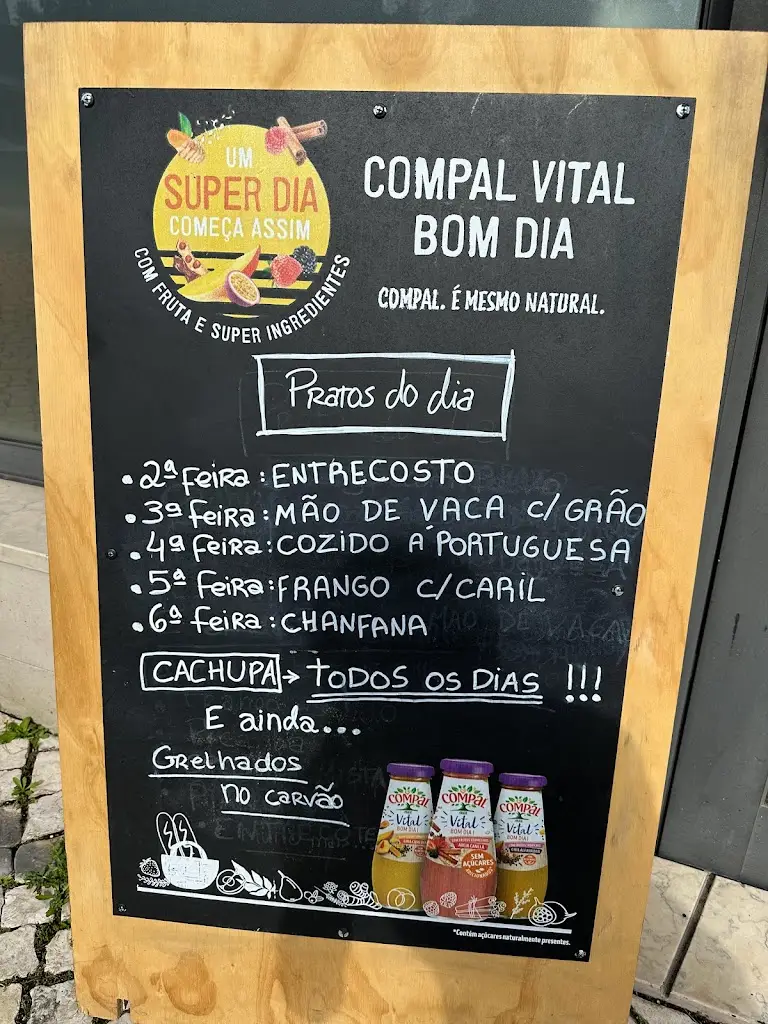 UM
SUPER DIA
COMEÇA ASSIM
COM FRUTA E SUPER INGREDIENTES
COMPAL VITAL
BOM DIA
COMPAL. É MESMO NATURAL.
Pratos do dia
• 2ª feira: ENTRECOSTO
• 3ª feira: MÃO DE VACA C/GRÃO
• 4ª feira: COZIDO À PORTUGUESA
• 5ª feira: FRANGO C/CARIL
• 6ª feira: CHANFANA
CACHUPA → TODOS OS DIAS !!!
E ainda...
Grelhados
no carvão
COMPAL COMPAL COMPAL
Vital Vital Vital
BOM DIA! BOM DIA! BOM DIA!
SEM
AÇÚCARES
*Contém açúcares naturalmente presentes.